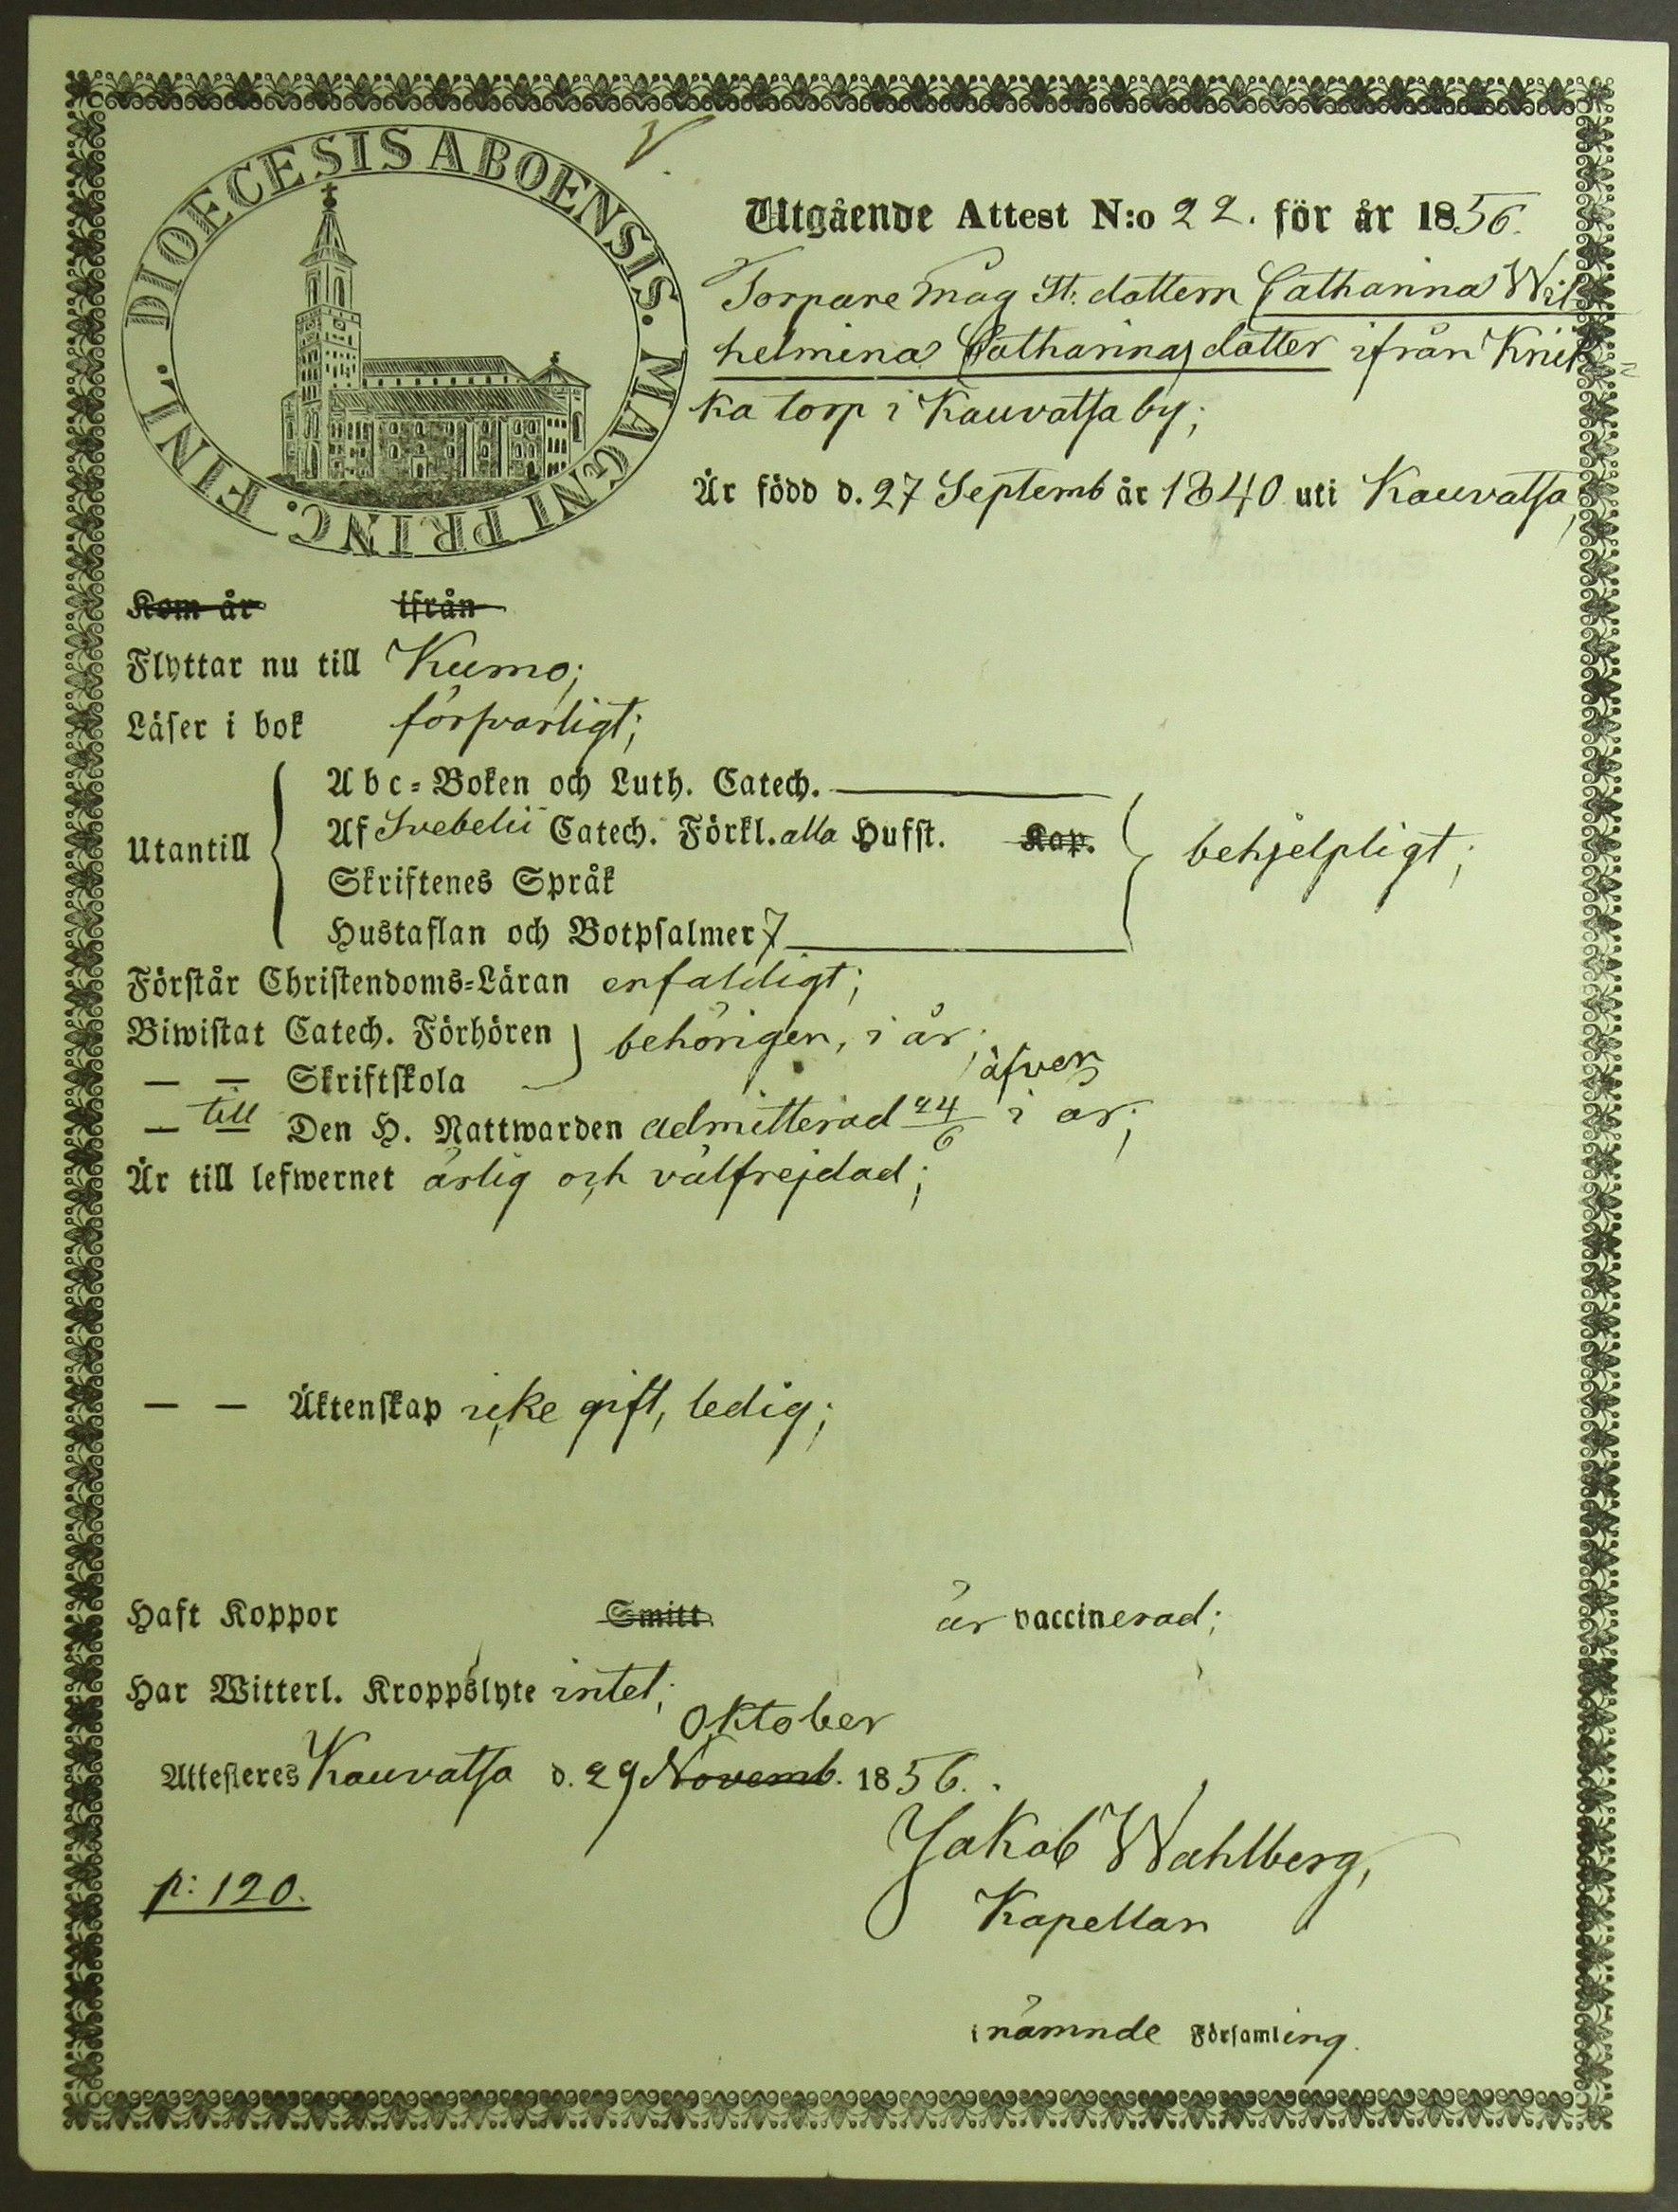 FINL. DIOECESIS ABOENSIS. MAGNI PRINC.
V.
Utgående Attest N:o 22. för år 1856.
Torpare Måg St: dottern Catharina Wil
helmina Catharinas dotter ifrån Knik=
ka torp i Kauvatsa by;
Är född d. 27 Septemb år 1840 uti Kauvatsa,
Kom år ifrån
Flyttar nu till Kumo;
Läser i bok försvarligt;
Utantill
Abc-Boken och Luth. Catech.
Af Svebelii Catech. Förkl. alla Hufst. Kap.
behjelpligt;
Skriftenes Språk
Hustaflan och Botpsalmer 7
Förstår Christendoms-Läran enfaldigt;
Biwistat Catech. Förhören behörigen, i år;
— — Skriftskola
äfven
— till Den H. Nattwarden admitterad 24/6 i år;
Är till lefwernet ärlig och välfrejdad;
— — Äktenskap icke gift, ledig;
Haft Koppor Smitt är vaccinerad;
Har Witterl. Kroppslyte intet;
Oktober
Attesteres Kauvatsa d. 29 Novemb. 1856.
Jakob Wahlberg,
p: 120.
Kapellan
i nämnde Församling.